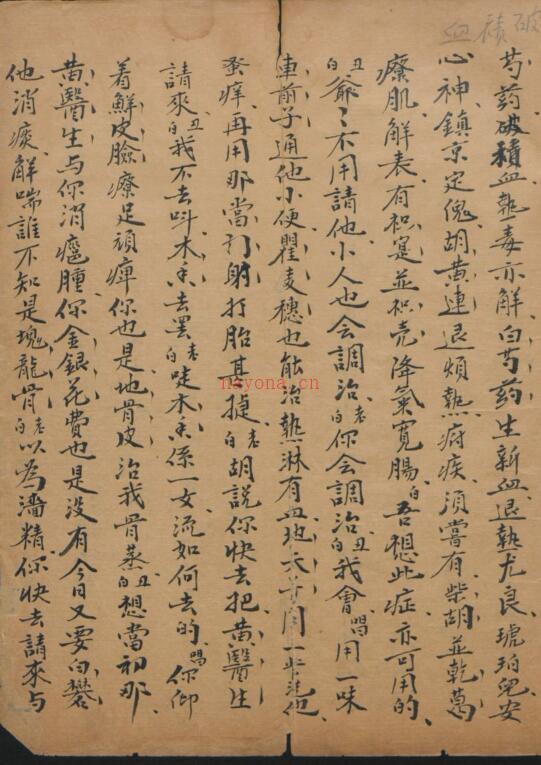 破積血
芍药破積血熱毒亦解白芍药生新血退熱尤良琥珀兒安
心神鎮京定傀胡黄連退煩熱疳疾須嘗有柴胡並乾葛
療肌解表有枳寔並枳壳降氣寬腸白吾想此症亦可用的
丑白爺〻不用請他小人也会調治老白你会調治丑白我會唱用一味
車前子通他小便瞿麦穗也能治熱淋有血地
蚤痒再用那當打射打胎甚捷老白胡說你快去把黄醫生
請來丑白我不去呌木香去罢老白唗木香係一女流如何去的唱你仰
着鮮皮臉療足頑痺你也是地骨皮治我骨蒸丑白想當初那
黄醫生与你消癰腫你金銀花費也是没有今日又要白礬
他消痰解喘誰不知是塊龍骨老白以為濇精你快去請來与
nayona.cn